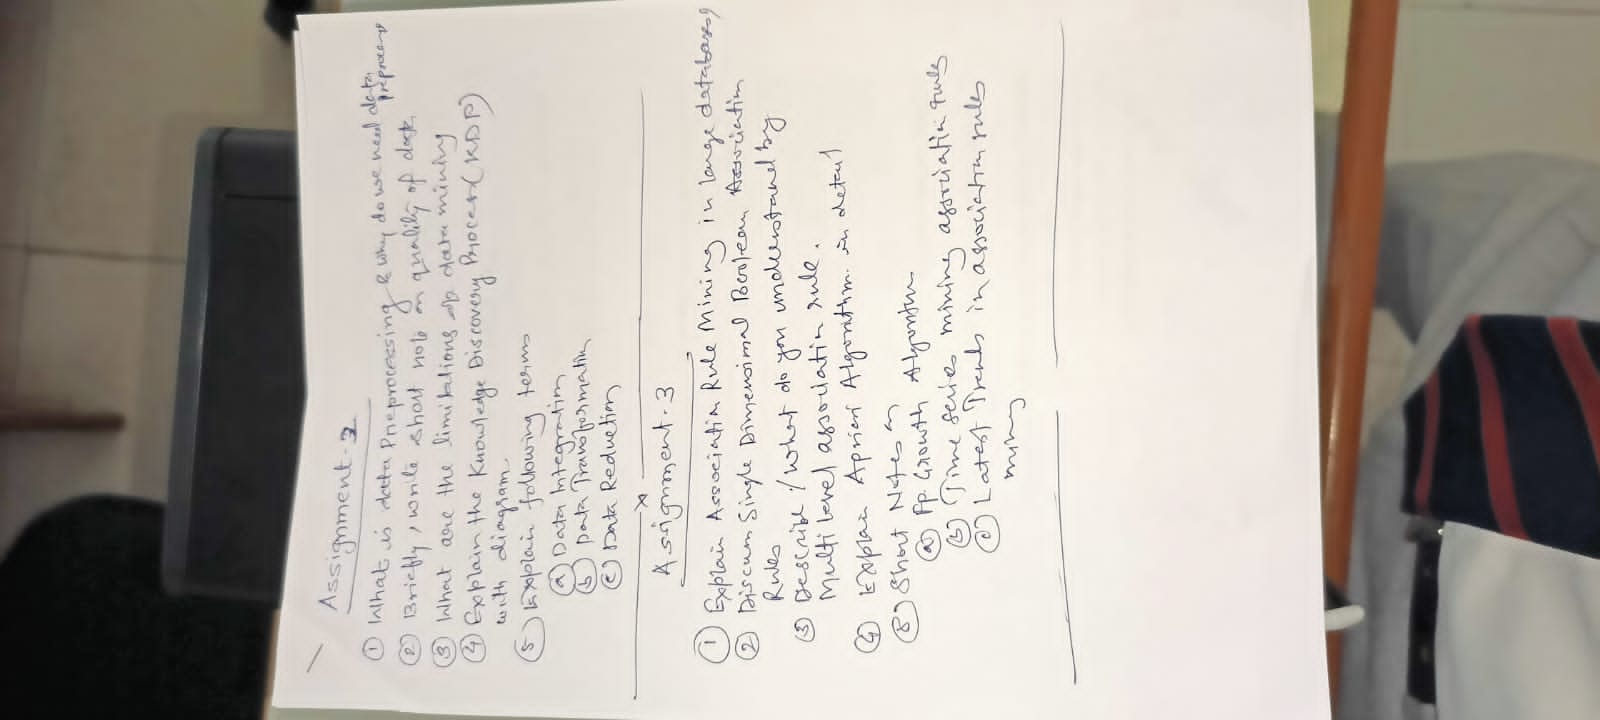 Assignment-2
① What is data Preprocessing & why do we need data preprocess
② Briefly, write short note on quality of data.
③ What are the limitations of data mining
④ Explain the Knowledge Discovery Process (KDP)
with diagram
⑤ Explain following terms
ⓐ Data Integration
ⓑ Data Transformation
ⓒ Data Reduction
x
Assignment-3
① Explain Association Rule Mining in large databases,
② Discuss Single Dimensional Boolean Association
Rules
③ Describe / What do you understand by
Multi level association rule.
④ Explain Apriori Algorithm in detail
⑤ Short Notes on
ⓐ Fp Growth Algorithm
ⓑ Time Series mining association rule
ⓒ Latest Trends in association rules
mining